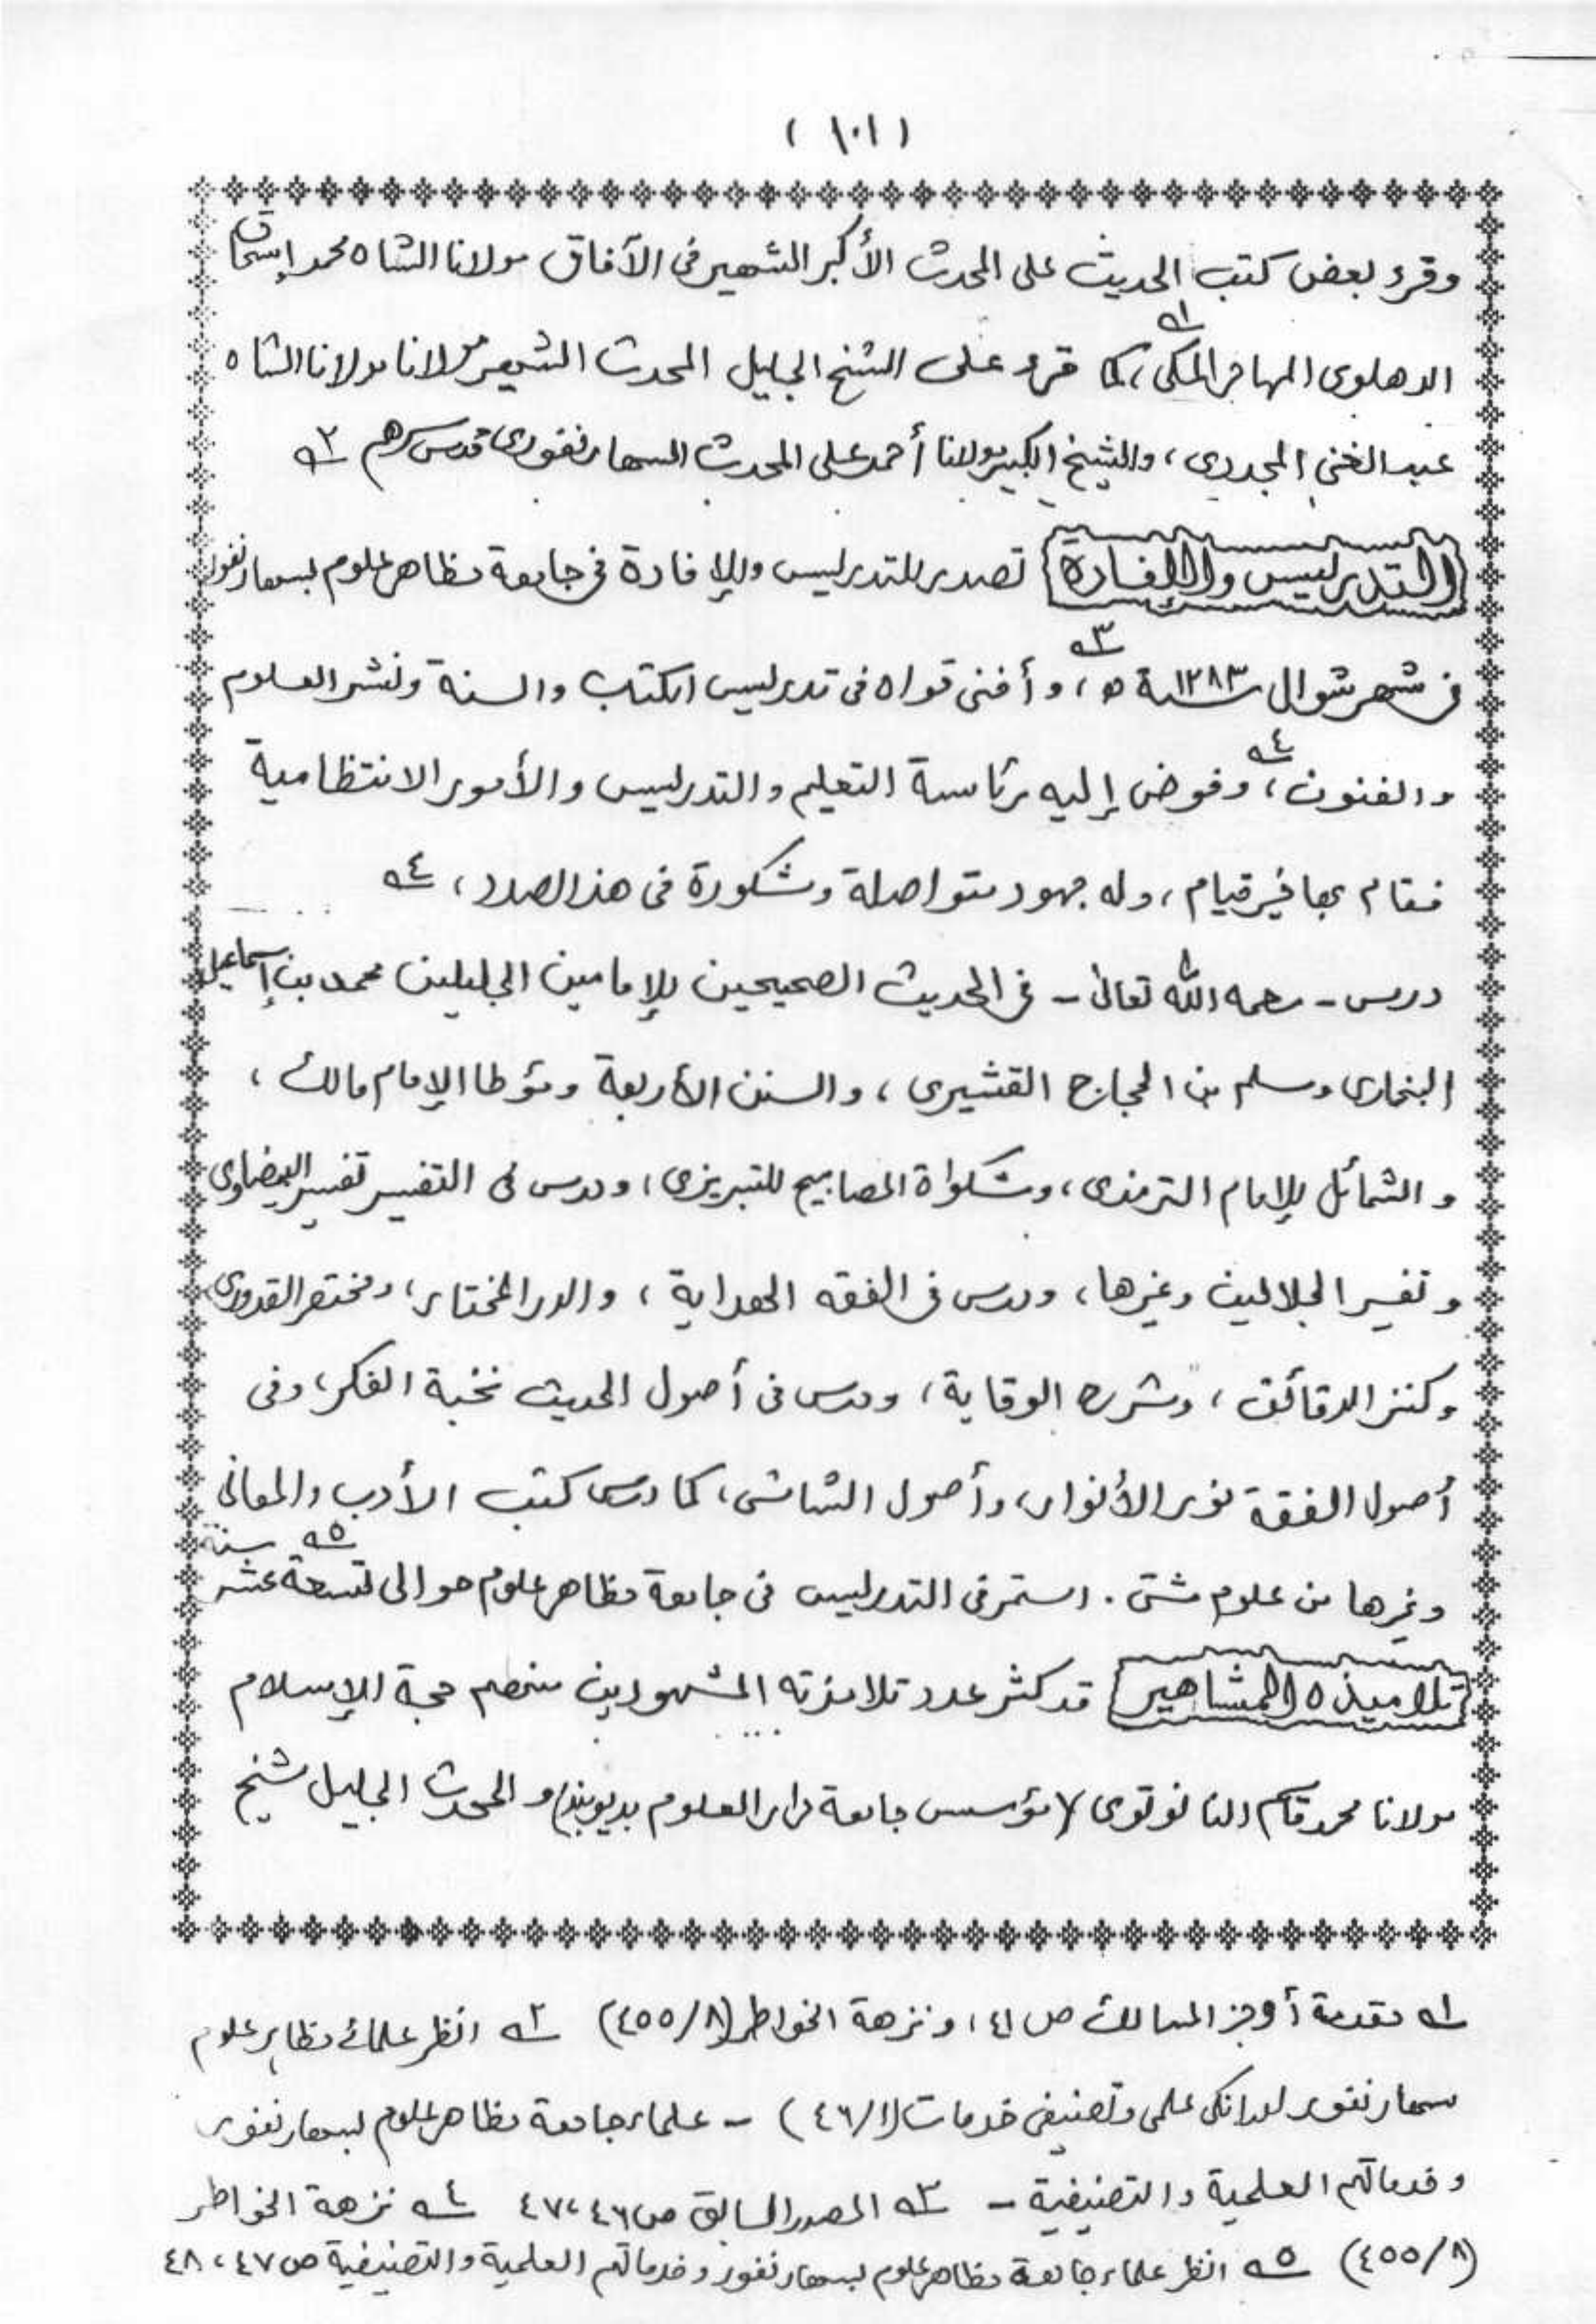 ( ١٠١ )
وقرء بعض كتب الحديث على المحدث الأكبر الشهير فى الآفاق مولانا الشاه محمد إسحاق
الدهلوى المهاجر المكى ١ه، كما قرء على الشيخ الجليل المحدث الشهير مولانا مولانا الشاه
عبد الغنى المجددى، والشيخ الكبير مولانا أحمد على المحدث السهارنفورى قدس سرهم ٢ه
التدريس والإفادة تصدر للتدريس وللإفادة فى جامعة مظاهر علوم بسهارنفور
فى شهر شوال سنة ١٢٨٣ه ٣ه، وأفنى قواه فى تدريس الكتاب والسنة ونشر العلوم
والفنون ٤ه، وفوض إليه رئاسة التعليم والتدريس والأمور الانتظامية
فقام بها خير قيام، وله جهود متواصلة ومشكورة فى هذا الصدد، ٤ه
درس - رحمه الله تعالىٰ - فى الحديث الصحيحين للإمامين الجليلين محمد بن إسماعيل
البخارى ومسلم بن الحجاج القشيرى، والسنن الأربعة ومؤطا الإمام مالك،
والشمائل للإمام الترمذى، ومشكواة المصابيح للتبريزى، ودرس فى التفسير تفسير البيضاوى
وتفسير الجلالين وغيرها، ودرس فى الفقه الهداية، والدر المختار، ومختصر القدورى
وكنز الدقائق، وشرح الوقاية، ودرس فى أصول الحديث نخبة الفكر، وفى
أصول الفقة نور الأنوار، وأصول الشاشى، كما درس كتب الأدب والمعانى
وغيرها من علوم شتى. استمر فى التدريس فى جامعة مظاهر علوم حوالى تسعة عشر سنة ٥ه
تلاميذه المشاهير قد كثر عدد تلامذته المشهورين منهم حجة الإسلام
مولانا محمد قاسم النانوتوى (مؤسس جامعة دار العلوم بديوبند) والمحدث الجليل شيخ
١ه مقدمة أوجز المسالك ص ٤١، ونزهة الخواطر (٨/٤٥٥) ٢ه انظر علمائے مظاہر علوم
سهارنفور اور انكى علمى وتصنيفى خدمات (١/٤٦) - علماء جامعة مظاهر علوم بسهارنفور
وخدماتهم العلمية والتصنيفية - ٣ه المصدر السابق ص ٤٦، ٤٧ ٤ه نزهة الخواطر
(٨/٤٥٥) ٥ه انظر علماء جامعة مظاهر علوم بسهارنفور وخدماتهم العلمية والتصنيفية ص ٤٧، ٤٨